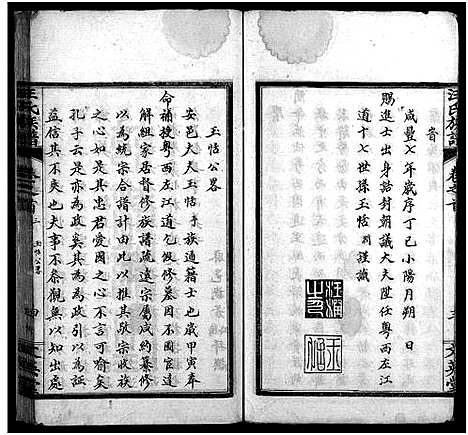 汪氏族譜
卷之首
旨
咸豐七年歲序丁巳小陽月朔日
賜進士出身誥封朝議大夫陞任粵西左江
道十七世孫玉恬 謹識
玉恬公畧
安邑大夫玉恬手族通籍士也歲甲寅奉
命補授粵西左江道乞假修墓因不團宦遠
解組家居督修族譜疏遠宗屬咸約纂修
以為統宗合譜計由此以觀敬宗收族
之心如此其忠君愛國之心不大可徵歟
孔子云是亦為政奚其為為政引以為證
益信其不爽也夫事不參觀無以知出處
汪氏族譜
卷之首
玉恬公畧